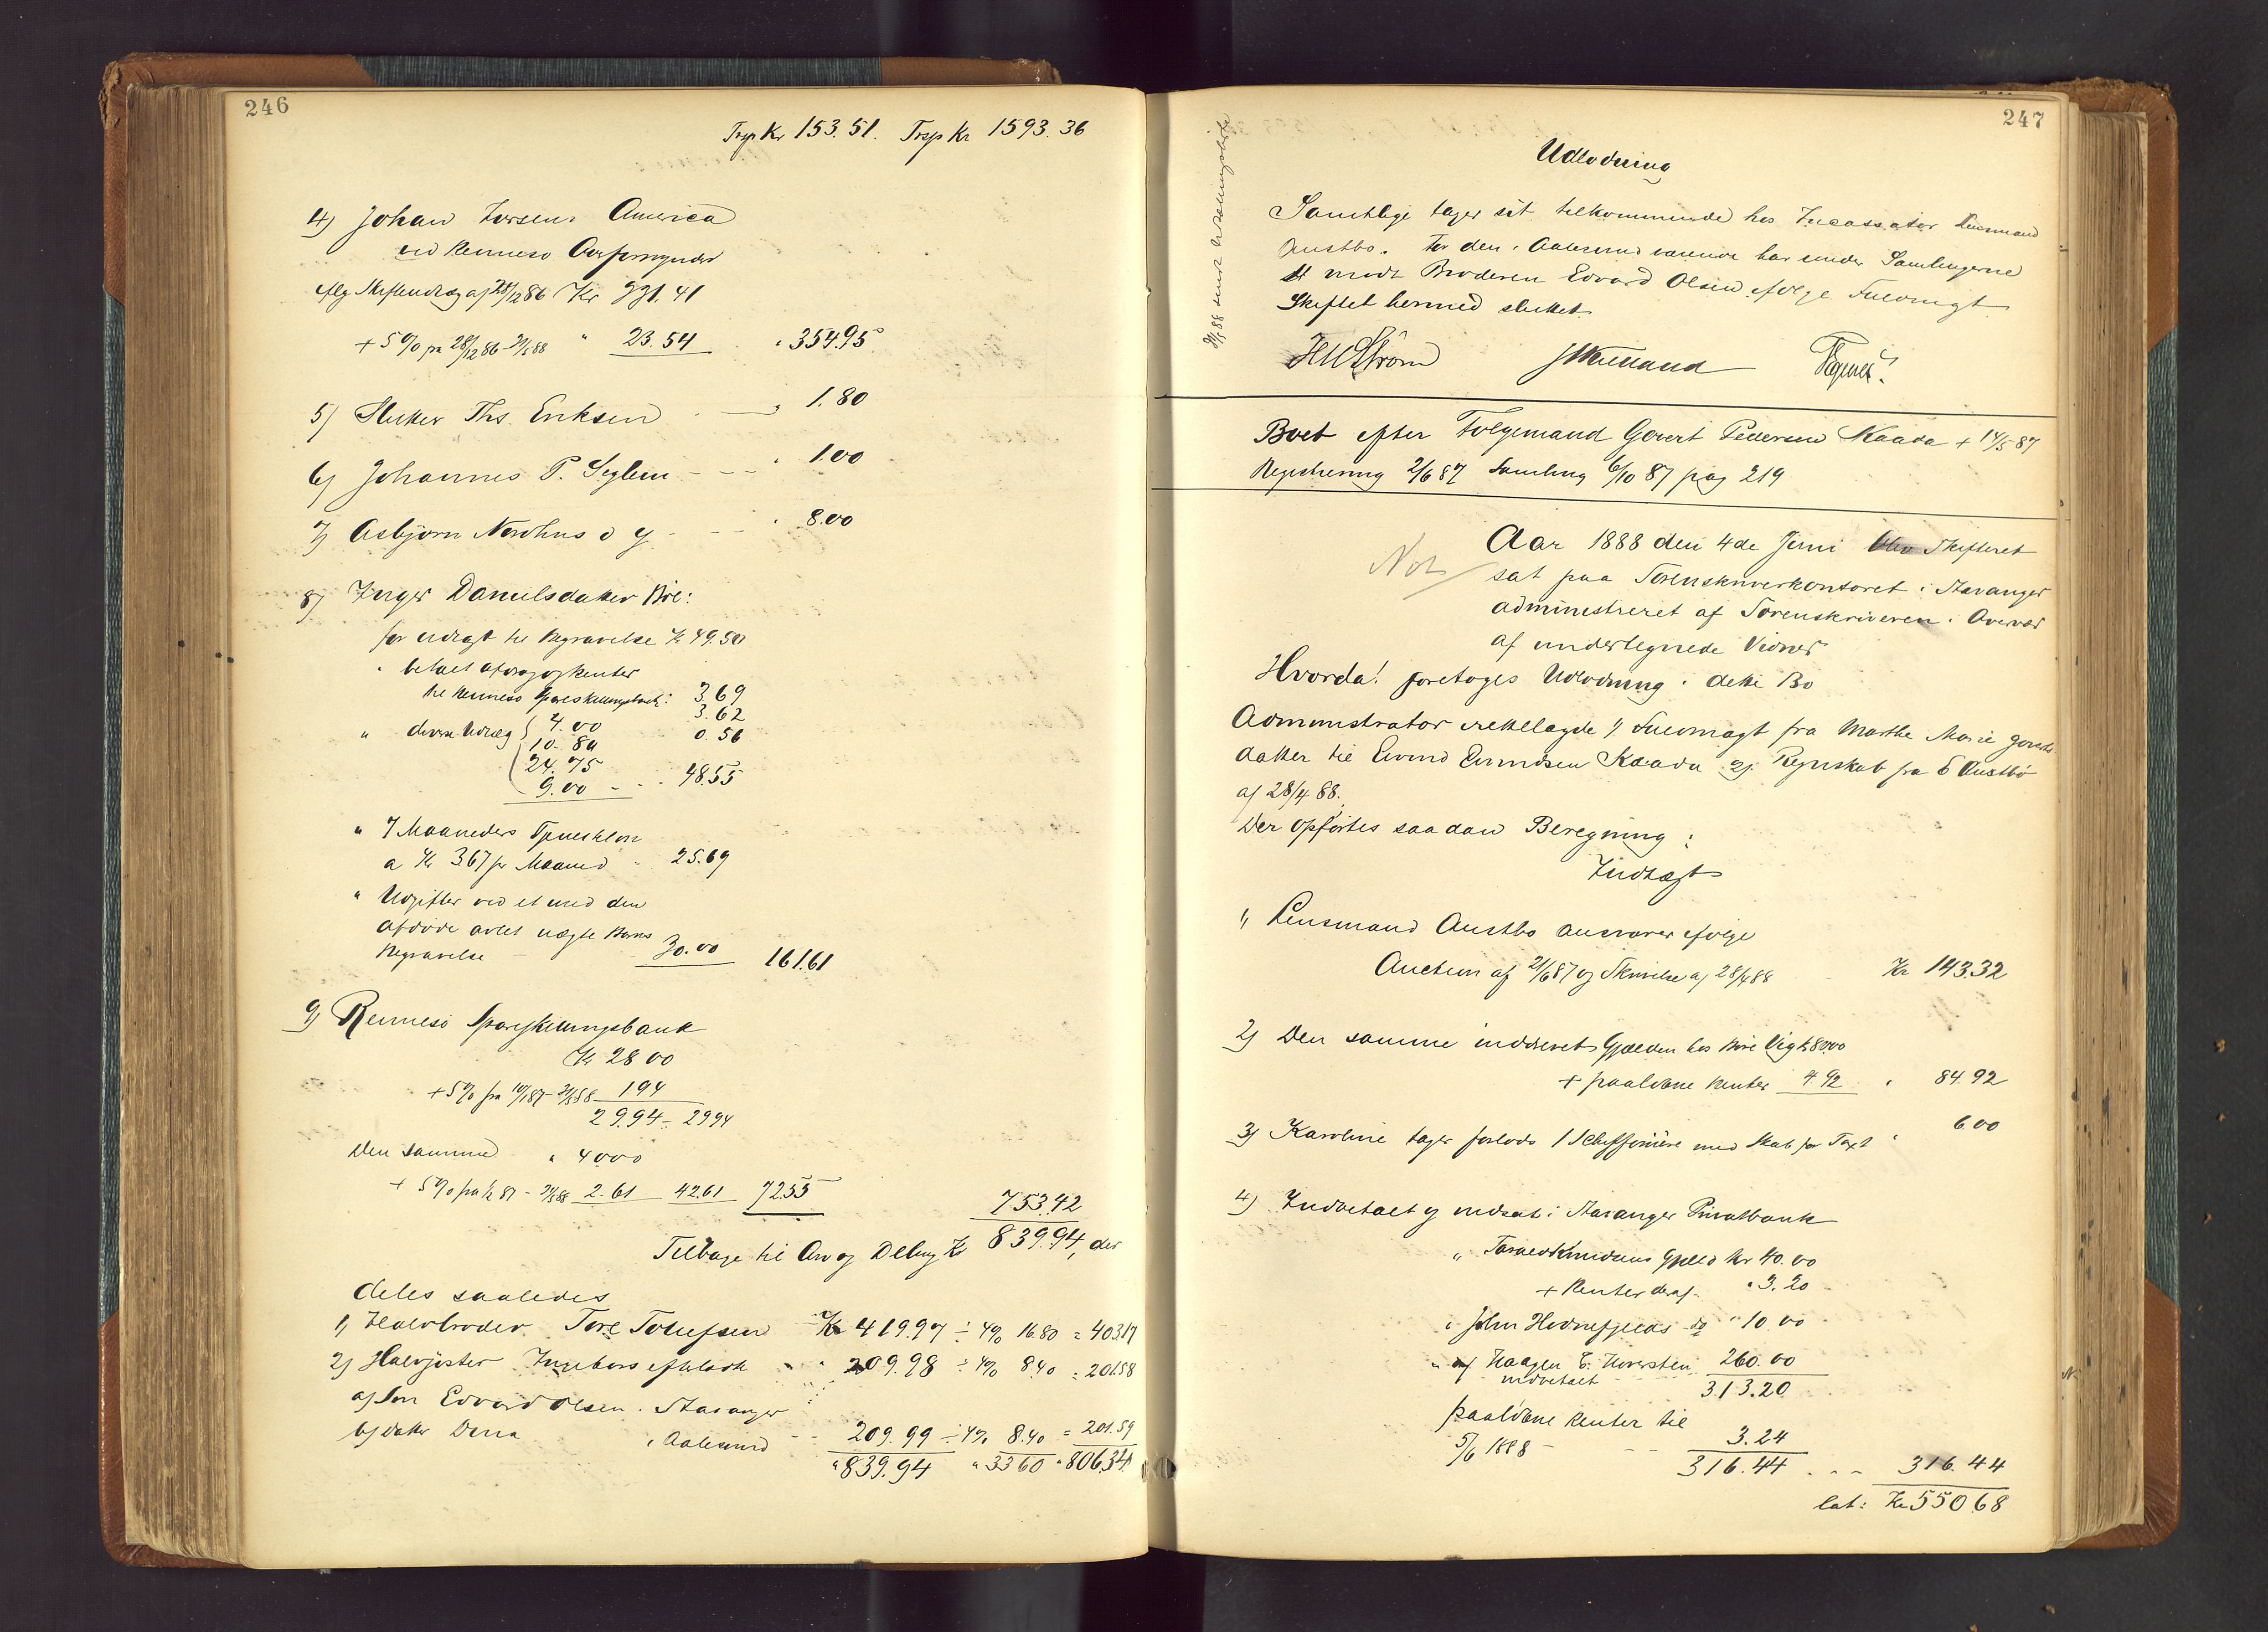 246
Trsp Kr 153.51. Trsp Kr 1593.36
4) Johan Larsen, America
ved Rennesø Overformynderi
eflg Skifteudlæg af 28/12 86 Kr 331.41
+ 5 % fra 28/12 86 - 31/5 88 " 23.54 " 354.95
5) Slutter Ths. Eriksen " 1.80
6) Johannes P. Seglem - - - " 1.00
7) Asbjørn Nordhus d y - - - " 8.00
8) Inger Danielsdatter Bø:
for udlagt til Begravelse Kr 49.50
" betalt afdrag og Renter
til Rennesø Spareskillingsbank: 3.69
3.62
" diverse Udlæg 4.00 0.56
10.80
24.75
9.00 - - - 48.55
" 7 Maaneders Tjenestløn
a Kr 3.67 pr Maaned - 25.69
" Udgifter ved et med den
afdøde avlet uægte Barns
Begravelse - 30.00 161.61
9) Rennesø Spareskillingsbank
Kr 28.00
+ 5 % fra 10/1 87 - 31/5 88 1.94
29.94 - 29.94
Den samme " 40.00
+ 5 % fra 1/2 87 - 31/5 88 2.61 42.61 72.55 753.42
Tilbage til Arv og Deling Kr 839.94, der
deles saaledes
1) Halvbroder Tore Tollefsen Kr 419.97 ÷ 4% 16.80 = 403.17
2) Halvsøster Ingeborg efterladte " 209.98 ÷ 4% 8.40 = 201.58
a) Søn Edvard Olsen i Stavanger
b) datter Dina i Aalesund - - 209.99 ÷ 4% 8.40 = 201.59
" 839.94 " 33.60 " 806.34
247
Udlodning
Samtlige tager sit tilkommende hos Incassator Lensmand
Austbø. For den i Aalesund værende har under Samlingerne
mødt Broderen Edvard Olsen ifølge Fuldmagt
Skiftet hermed sluttet.
HMStrøm
Boet efter Følgemand Govert Pedersen Kaada + 14/5 87
Registrering 2/6 87 Samling 6/10 87 pag 219
Not
Aar 1888 den 4de Juni blev Skifteret
sat paa Sorenskriverkontoret i Stavanger
administreret af Sorenskriveren i Overvær
af undertegnede Vidner
Hvorda! foretoges Udlodning i dette Bo
Administrator fremlagde 1) Fuldmagt fra Marthe Marie Goverts
datter til Eivind Eivindsen Kaada 2) Regnskab fra E Austbø
af 28/4 88.
Der opførtes saadan Beregning:
Indtægt
1) Lensmand Austbø ansvarer ifølge
Auction af 21/6 87 og Skrivelse af 28/4 88 Kr 143.32
2) Den samme inddrevet Gjælden hos Børe Vig Kr 80.00
+ paaløbne Renter 4.92 " 84.92
3) Karoline tager forlods 1 Schiffonière med Skab for Taxt " 6.00
4) Indbetalt og indsat i Stavanger Privatbank
" Knudsens Gjæld Kr 40.00
+ Renter deraf - " 3.20
" John Hodnefjelds do " 10.00
" af Haagen E. Hversten 260.00
indbetalt 313.20
paaløbne Renter til
5/6 1888 - - - 3.24
316.44 - - - 316.44
lat: Kr 550.68